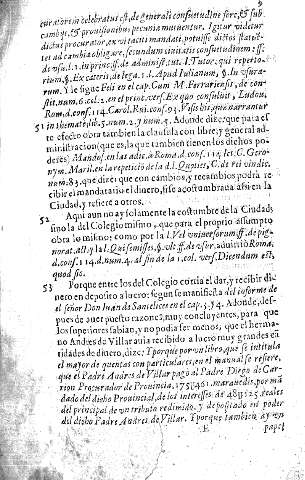 9
eur autem in celebratus est, de generali consuetudine fore, & sub
cambijs, & prouisionibus pecunia mutuentur, Igitur videtur
dictus procurator, ex vi taciti mandati, potuisse dictos
ad cambia obligare, secundum similis consuetudinem: ff.
de vsu. l. 1. in princ. ff. de administ. tut. l. Tutor, qui reperto-
rium, §. Ex cæteris, de lega. 1. l. Apud Iulianum, §. in vsura-
rum. Y le sigue Feli en el cap. Cum M. Ferrariensis, de con-
stit. num. 6. col. 2. en el princ. vers. Ex quo consuluit, Ludou.
Rom. d. cons. 114. Carol. Ruin. cons. 93. Visis his quæ narrantur
51 in themate, lib. 5. num. 2. y num. 4. Adonde dize: que para es-
te efecto obra tambien la clausula con libre, y general ad-
ministracion (que es, la que tambien tienen los dichos po-
deres) Mandos. en las adic. à Roma. d. cons. 114. let. C. Gero-
nym. Maril. en la repeticiõ de la d. l. Quoties, C. de rei vindic.
num. 83. que dize: que con cambios, y recambios podrà re-
cibir el mandatario el dinero, si se acostumbrada assi en la
Ciudad, y refiere a otros.
52 Aqui aun no ay solamente la costumbre de la Ciudad,
sino la del Colegio mismo, que para el proprio assumpto
obra lo mismo: como por la l. Vel vniuersorum ff. de pig-
norat. act. y la l. Qui semisses, §. vlt. ff. de vsur. aduirtiò Roma.
d. cons. 114. d. num. 4. al fin de la 1. col. vers. Dicendum est,
quod sic.
53 Porque entre los del Colegio corria el dar, y recibir di-
nero en deposito a lucro; segun se manifiesta del informe de
el señor Don Iuan de Santelices en el cap. 5. 74. Adonde, des-
pues de auer puesto razones, muy concluyentes, para que
los superiores sabian, y no podia ser menos, que el herma-
no Andres de Villar auia recibido a lucro muy grandes can
tidades de dinero, dize: Y porque por vn libro, que se intitula
el mayor de quentas con particulares, en el manual se refiere,
que el Padre Andres de Villar pagò al Padre Diego de Gar-
rion Procurador de Prouincia, 175 y 461. marauedis, por mã
dado del dicho Prouincial, de los interesses de 48 y 125. reales
del principal de vn tributo redimido, y depositado en poder
del dicho Padre Andres de Villar. Y porque tambien ay vn
E papel